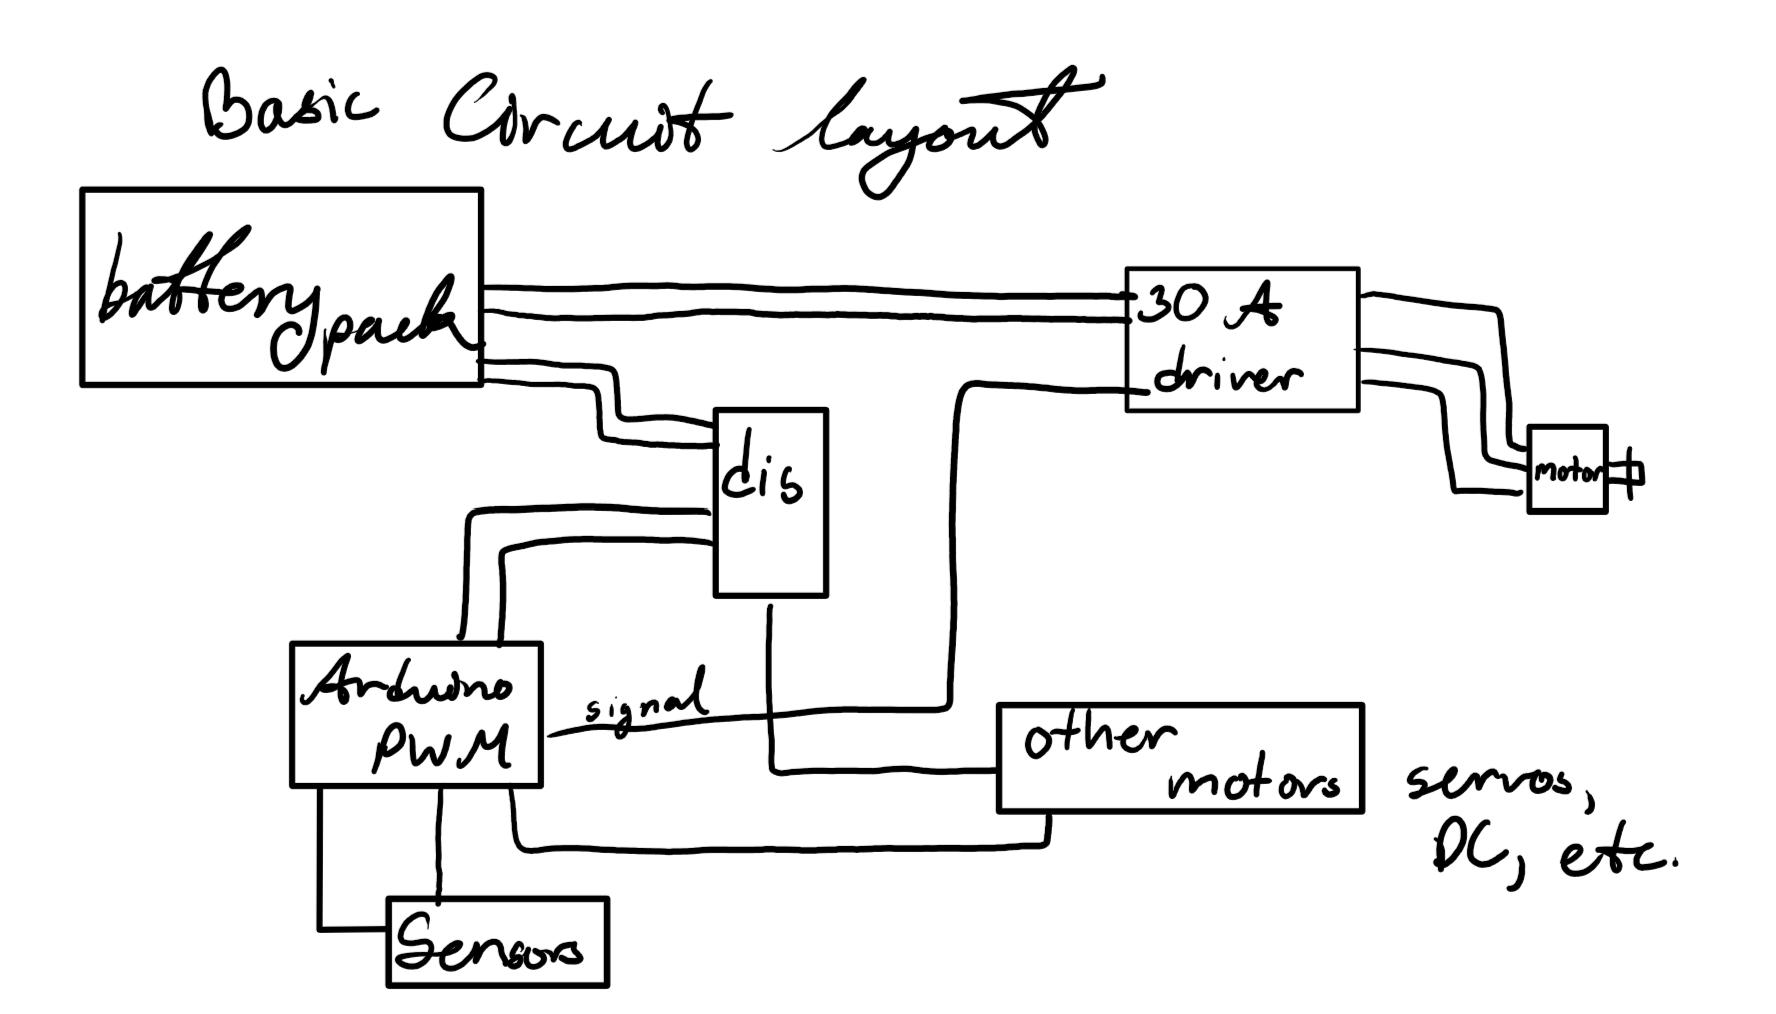 Basic Circuit layout
battery
pack
30 A
driver
dis
motor
Arduino
PWM
signal
other
motors
servos,
DC, etc.
Sensors